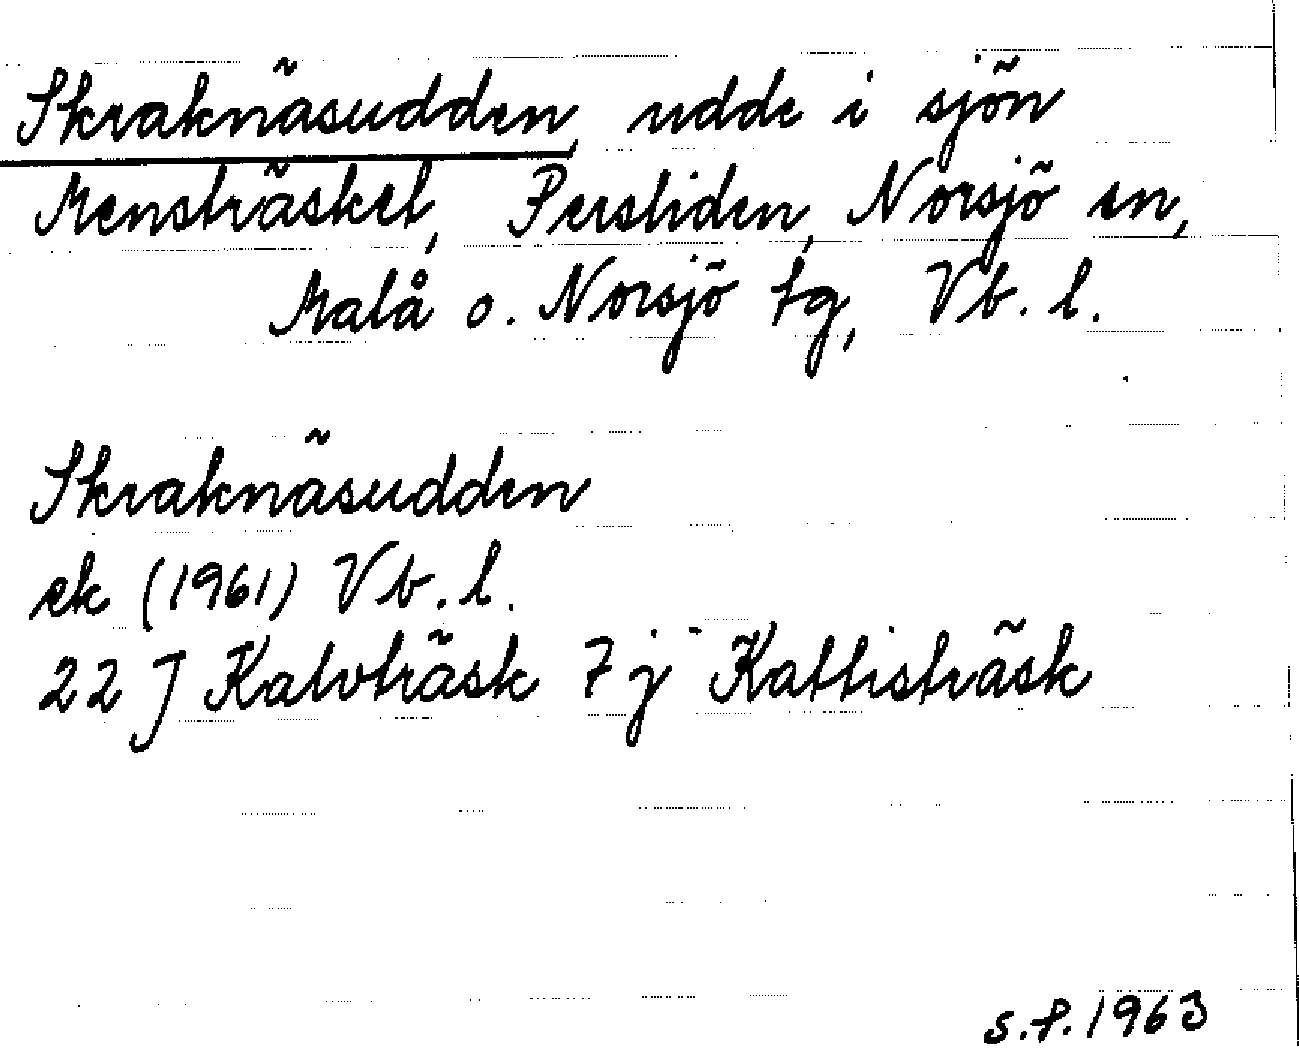 Skraknäsudden, udde i sjön
Mensträsket, Persliden, Norsjö sn,
Malå o. Norsjö tg, Vb. l.
Skraknäsudden
ek (1961) Vb. l.
22 J Kalvträsk 7 j Kattisträsk
s.f. 1963